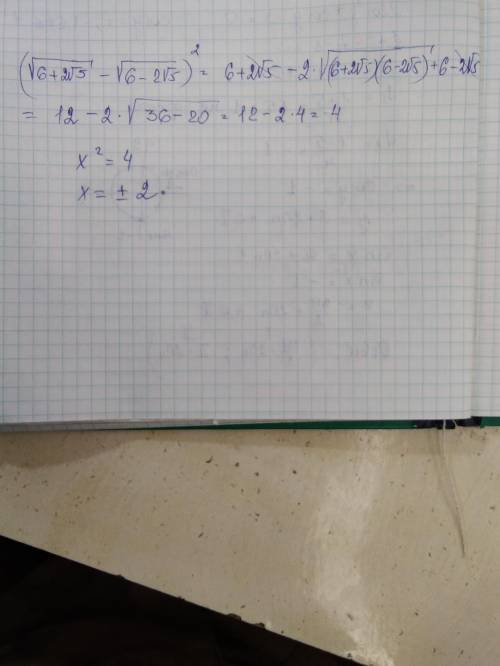 (√(6+2√5) - √(6-2√5))² = 6+2√5 - 2·√((6+2√5)(6-2√5)) + 6-2√5
= 12 - 2·√(36-20) = 12 - 2·4 = 4
x² = 4
x = ± 2.